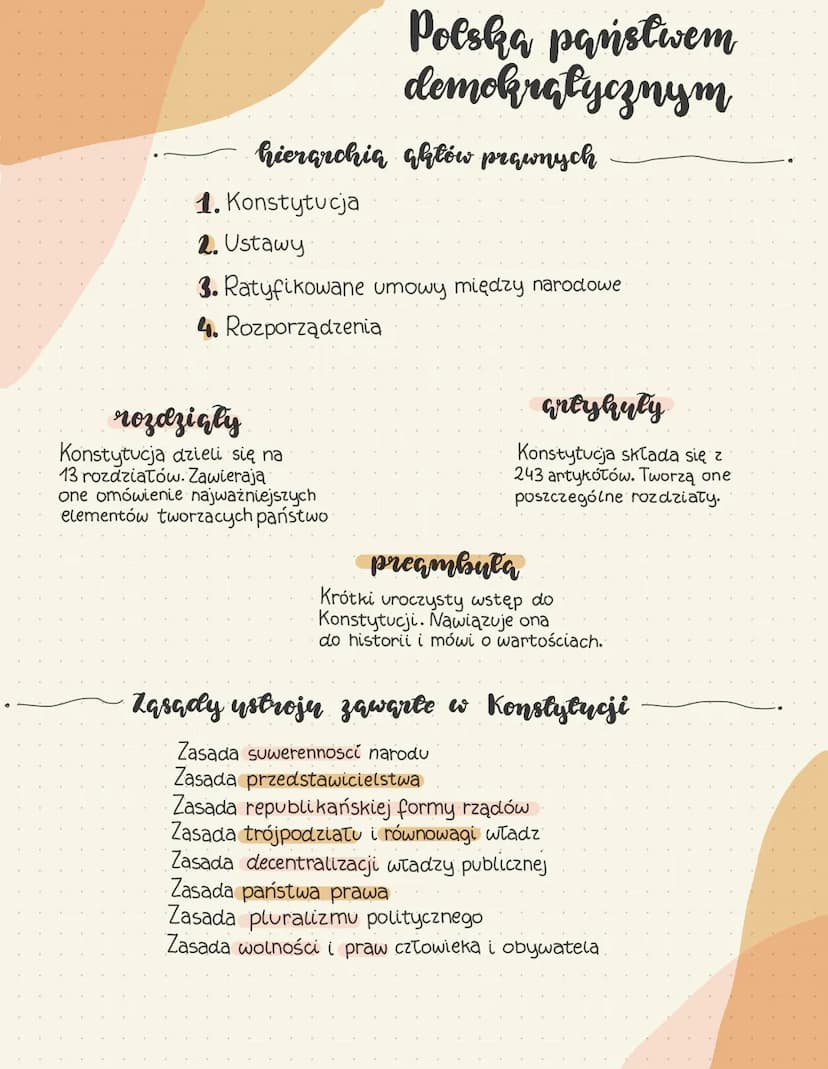 Polska państwem
demokratycznym
hierarchia aktów prawnych
1. Konstytucja
2. Ustawy
3. Ratyfikowane umowy między narodowe
4. Rozporządzenia
rozdziały
Konstytucja dzieli się na
13 rozdziałów. Zawierają
one omówienie najważniejszych
elementów tworzacych państwo
artykuły
Konstytucja składa się z
243 artykółów. Tworzą one
poszczególne rozdziały.
preambuła
Krótki uroczysty wstęp do
Konstytucji. Nawiązuje ona
do historii i mówi o wartościach.
Zasady ustroju zawarte w Konstytucji
Zasada suwerenności narodu
Zasada przedstawicielstwa
Zasada republikańskiej formy rządów
Zasada trójpodziału i równowagi władz
Zasada decentralizacji władzy publicznej
Zasada państwa prawa
Zasada pluralizmu politycznego
Zasada wolności i praw człowieka i obywatela